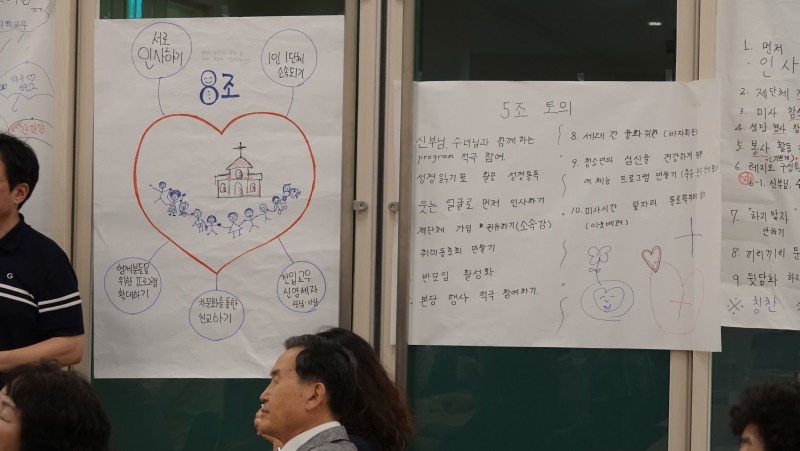 서로
인사하기
1인 1단체
소속되기
8조
형제분들을
위한 프로그램
확대하기
차문화를 통한
선교하기
전입교우
신영세자
5조 토의
신부님, 수녀님과 함께 하는
program 적극 참여.
성경 읽기표 활용 성경통독
웃는 얼굴로 먼저 인사하기
제단체 가입 권유하기(소속감)
취미동호회 만들기
반모임 활성화
본당 행사 적극 참여하기.
8. 세대간 융화위한 (바자회등)
9. 청소년의 심신을 건강하게 위한
예체능 프로그램 만들기
10. 미사시간 앞자리
1. 먼저
인사
2. 제단체
3. 미사 참
4. 성당 행사 참
5. 봉사 활동
(기쁘게)
6. 레지오
6-1. 신부님, 수
7. "하지 말자"
안하기
8. 끼리끼리 문
9. 뒷담화 하지
※ 칭찬
G